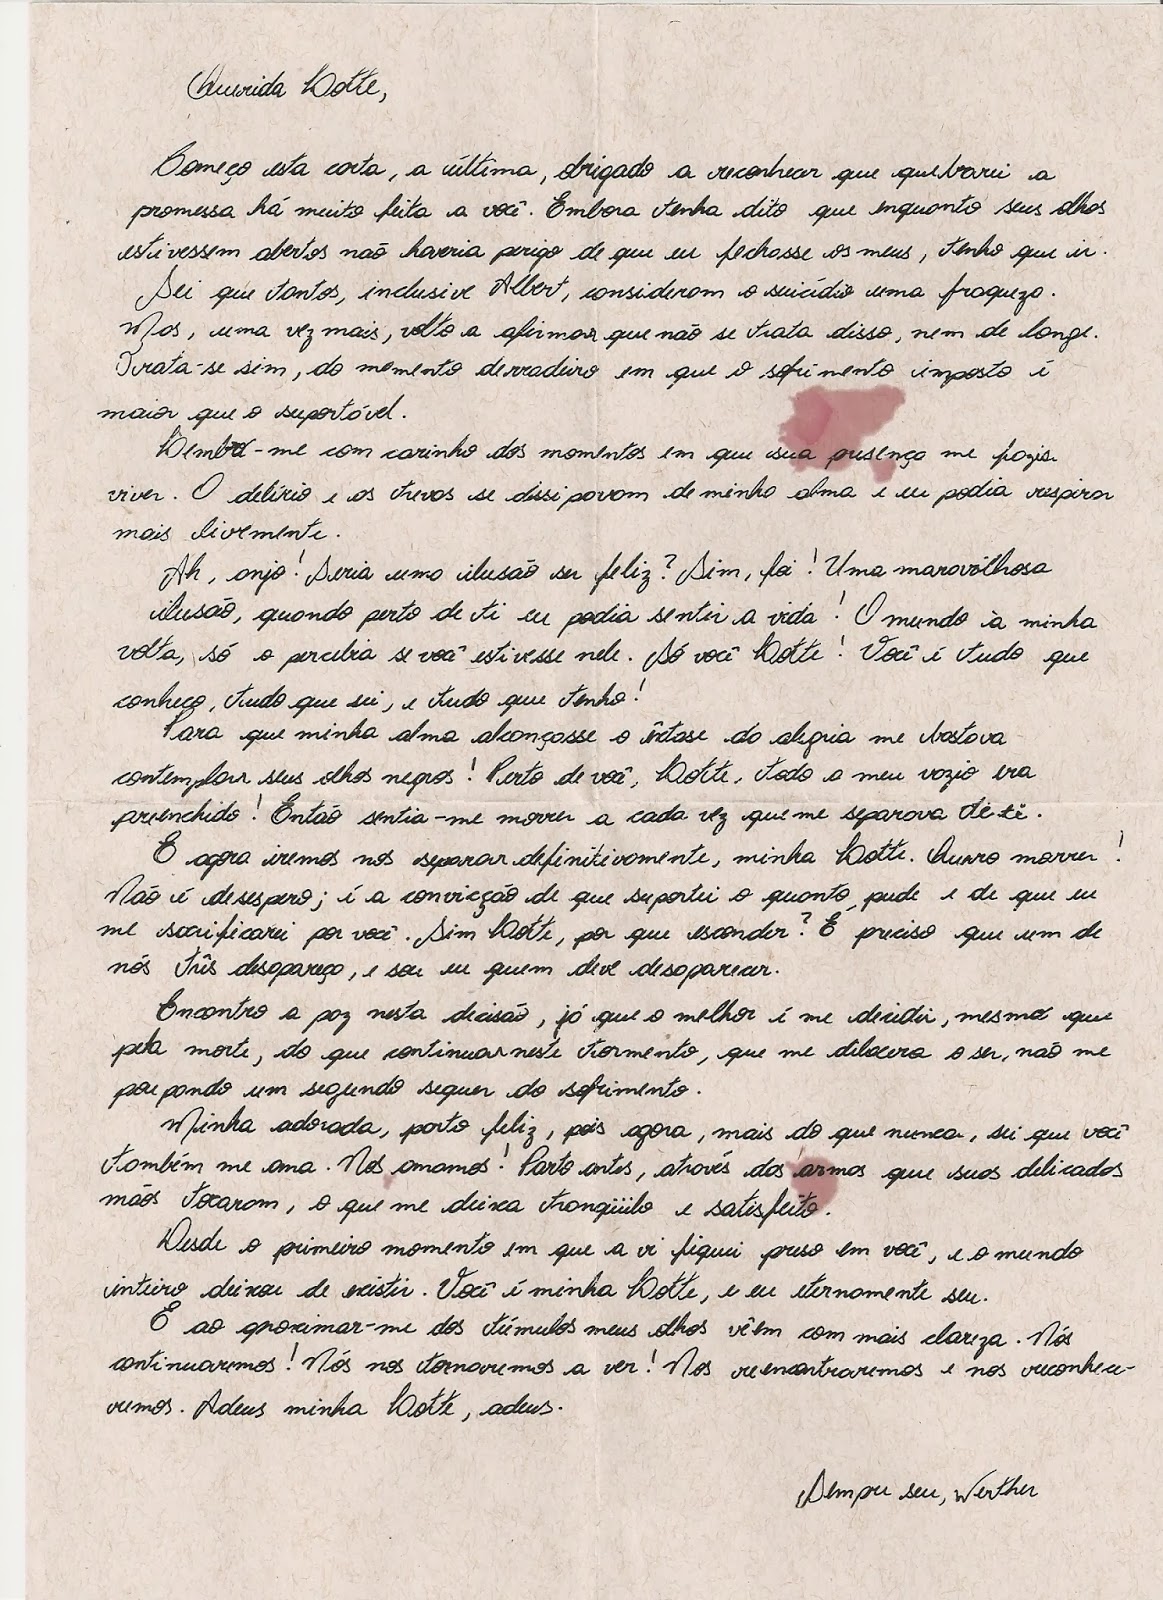 Querida Lotte,
Começo esta carta, a última, obrigado a reconhecer que quebrarei a
promessa há muito feita a você. Embora tenha dito que enquanto seus olhos
estivessem abertos não haveria perigo de que eu fechasse os meus, tenho que ir.
Sei que tantos, inclusive Albert, consideram o suicídio uma fraqueza.
Mas, uma vez mais, volto a afirmar que não se trata disso, nem de longe.
Trata-se sim, do momento derradeiro em que o sofrimento imposto é
maior que o suportável.
Lembra-me com carinho dos momentos em que sua presença me fazia
viver. O delírio e as trevas se dissipavam de minha alma e eu podia respirar
mais livremente.
Ah, anjo! Seria uma ilusão ser feliz? Sim, foi! Uma maravilhosa
ilusão, quando perto de ti eu podia sentir a vida! O mundo à minha
volta, só o percebia se você estivesse nele. Só você Lotte! Você é tudo que
conheço, tudo que sei, e tudo que tenho!
Para que minha alma alcançasse o êxtase da alegria me bastava
contemplar seus olhos negros! Perto de você, Lotte, todo o meu vazio era
preenchido! Então sentia-me morrer a cada vez que me separava de ti.
E agora iremos nos separar definitivamente, minha Lotte. Quero morrer!
Não é desespero; é a convicção de que suportei o quanto pude e de que eu
me sacrificarei por você. Sim Lotte, por que esconder? É preciso que um de
nós três desapareça, e sou eu quem deve desaparecer.
Encontro a paz nesta decisão, já que o melhor é me decidir, mesmo que
pela morte, do que continuar neste tormento, que me dilacera o ser, não me
poupando um segundo sequer do sofrimento.
Minha adorada, parto feliz, pois agora, mais do que nunca, sei que você
também me ama. Nos amamos! Parto antes, através das armas que suas delicadas
mãos tocaram, o que me deixa tranqüilo e satisfeito.
Desde o primeiro momento em que a vi fiquei preso em você, e o mundo
inteiro deixou de existir. Você é minha Lotte, e eu eternamente seu.
E ao aproximar-me dos túmulos meus olhos vêem com mais clareza. Nós
continuaremos! Nós nos tornaremos a ver! Nos reencontraremos e nos reconhece-
remos. Adeus minha Lotte, adeus.
Sempre seu, Werther